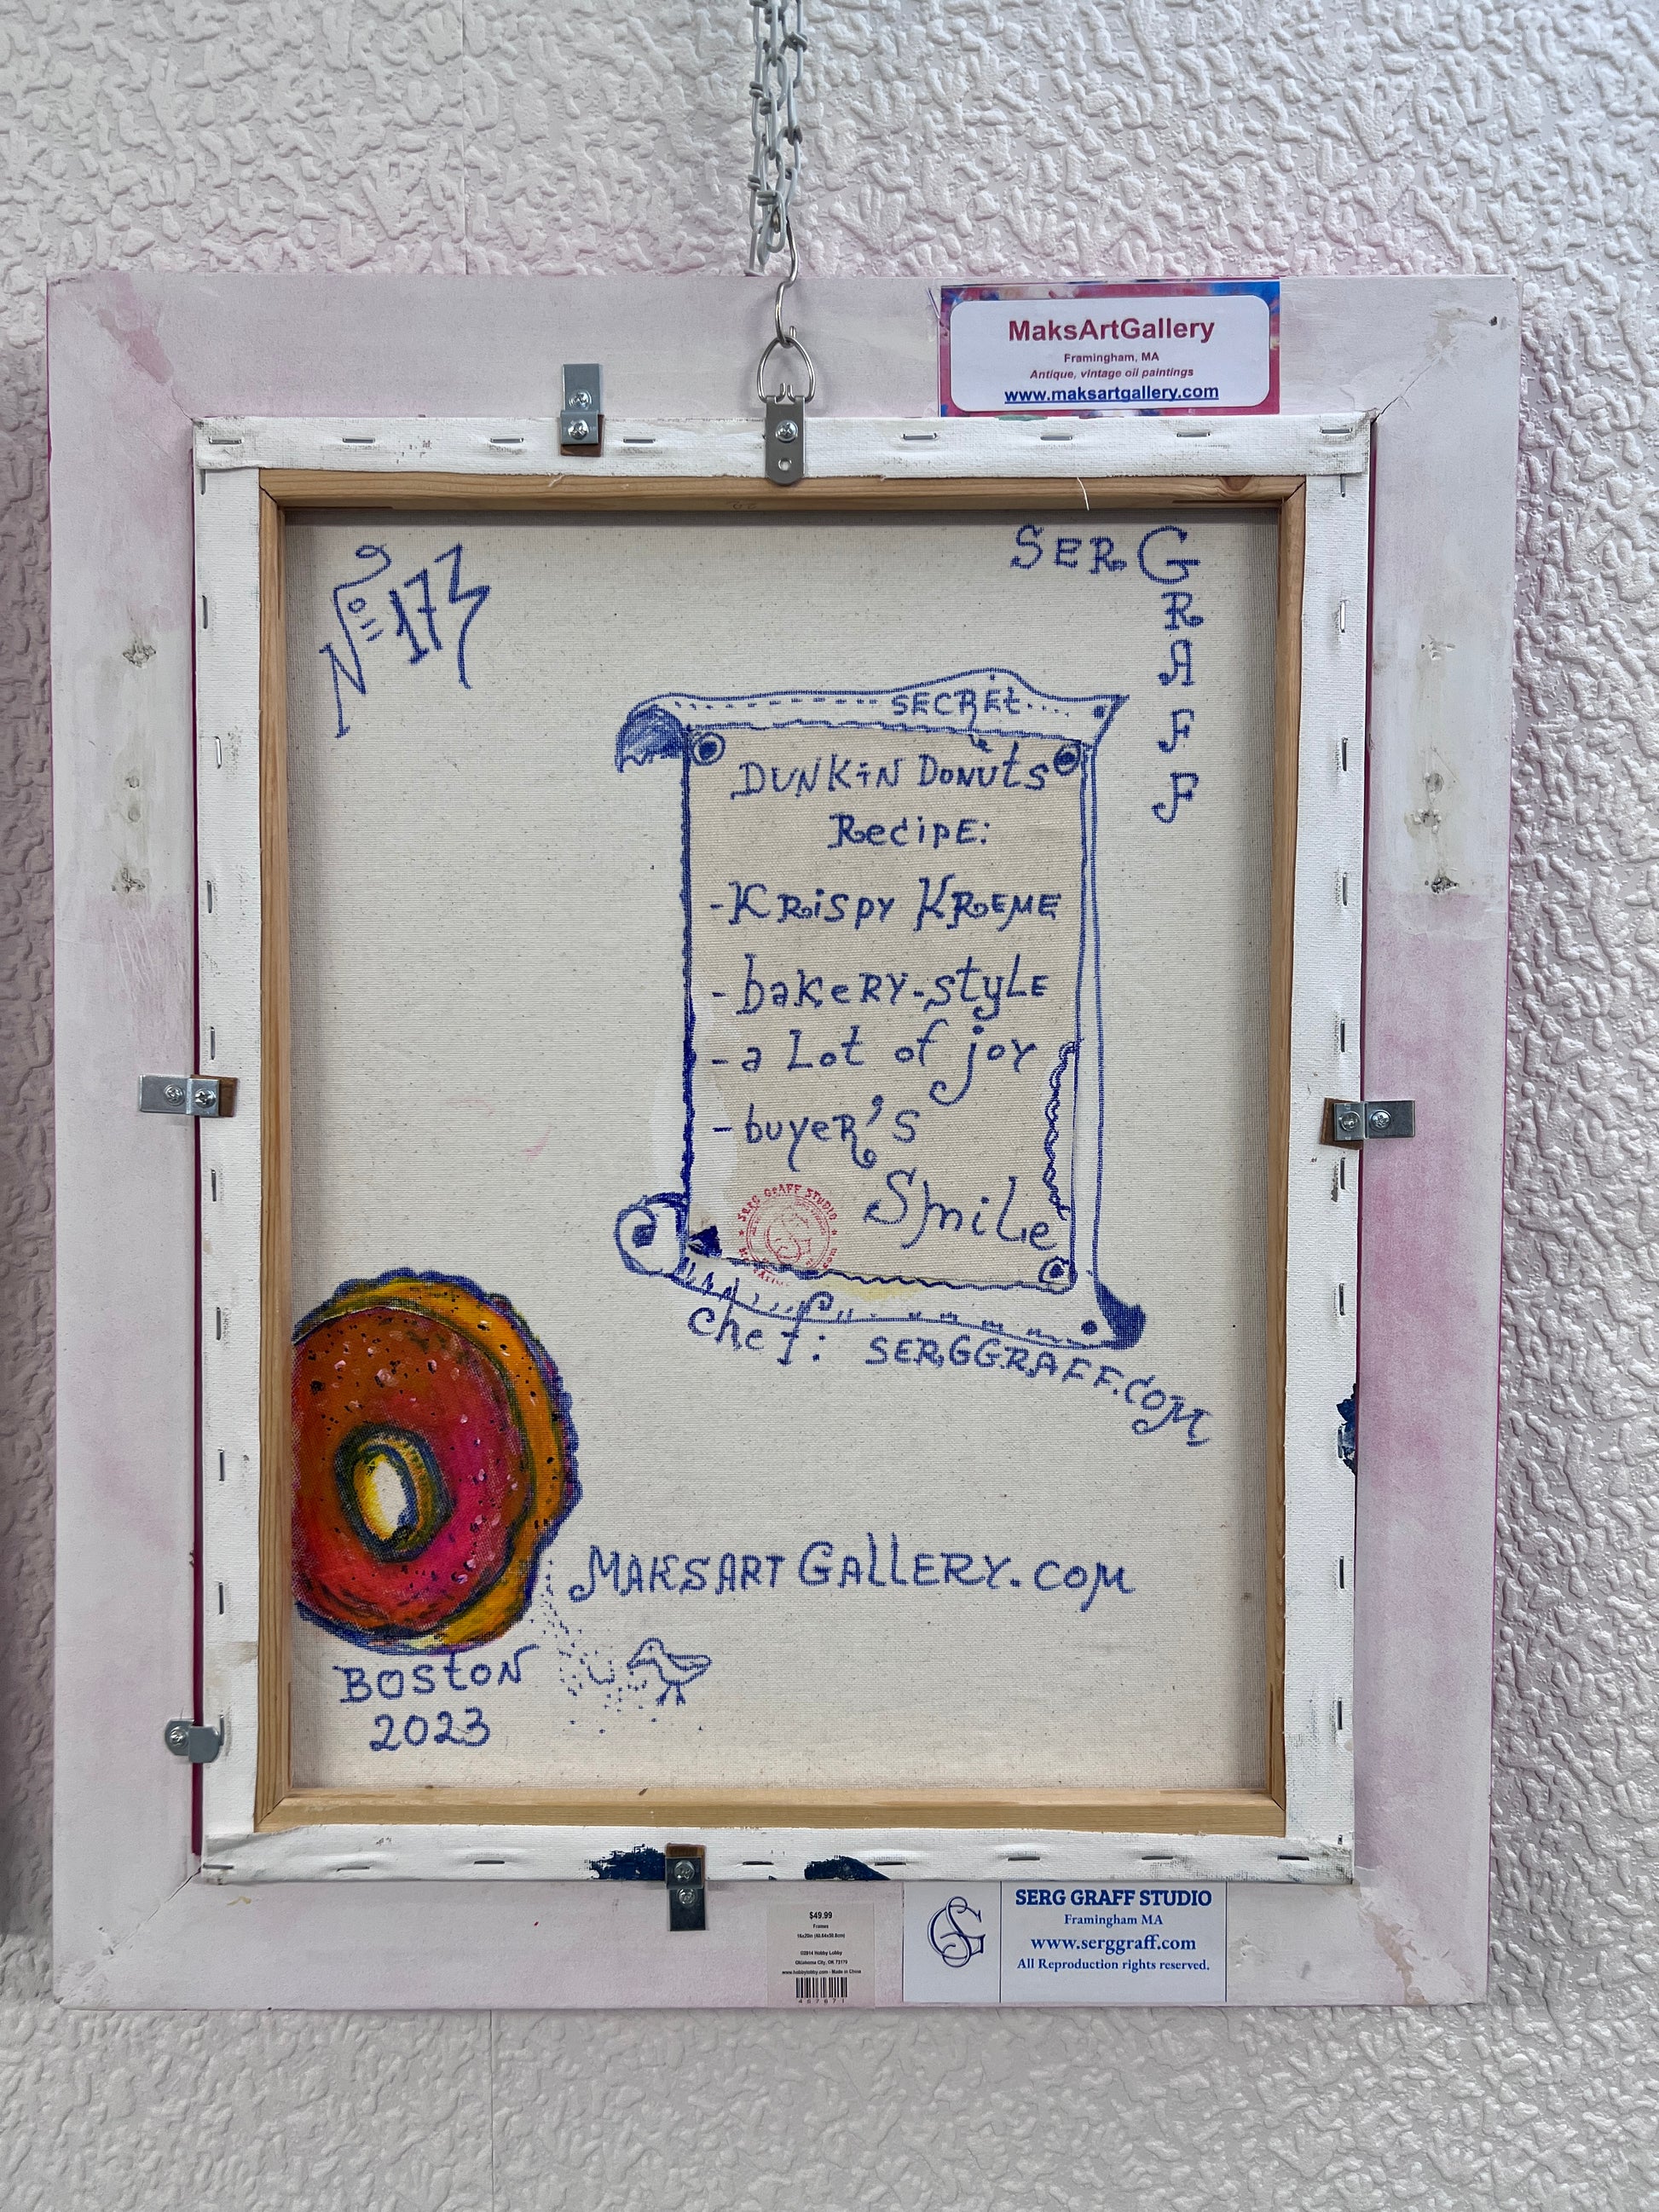 MaksArtGallery
Framingham, MA
Antique, vintage oil paintings
www.maksartgallery.com
SER GRAFF
№ 173
SECREt
DUNKiN DONUtS
RecipE:
-KRiSpy KREME
-bakeRY-styLE
-a Lot of joy
-buyeR's
SmiLe
SERG GRAFF STUDIO
chef: SERGGRAFF.COM
MAKSART GALLERY.COM
BOStON
2023
$49.99
Frames
16x20in (40.64x50.8cm)
©2014 Hobby Lobby
Oklahoma City, OK 73179
www.hobbylobby.com - Made in China
467671
SERG GRAFF STUDIO
Framingham MA
www.serggraff.com
All Reproduction rights reserved.